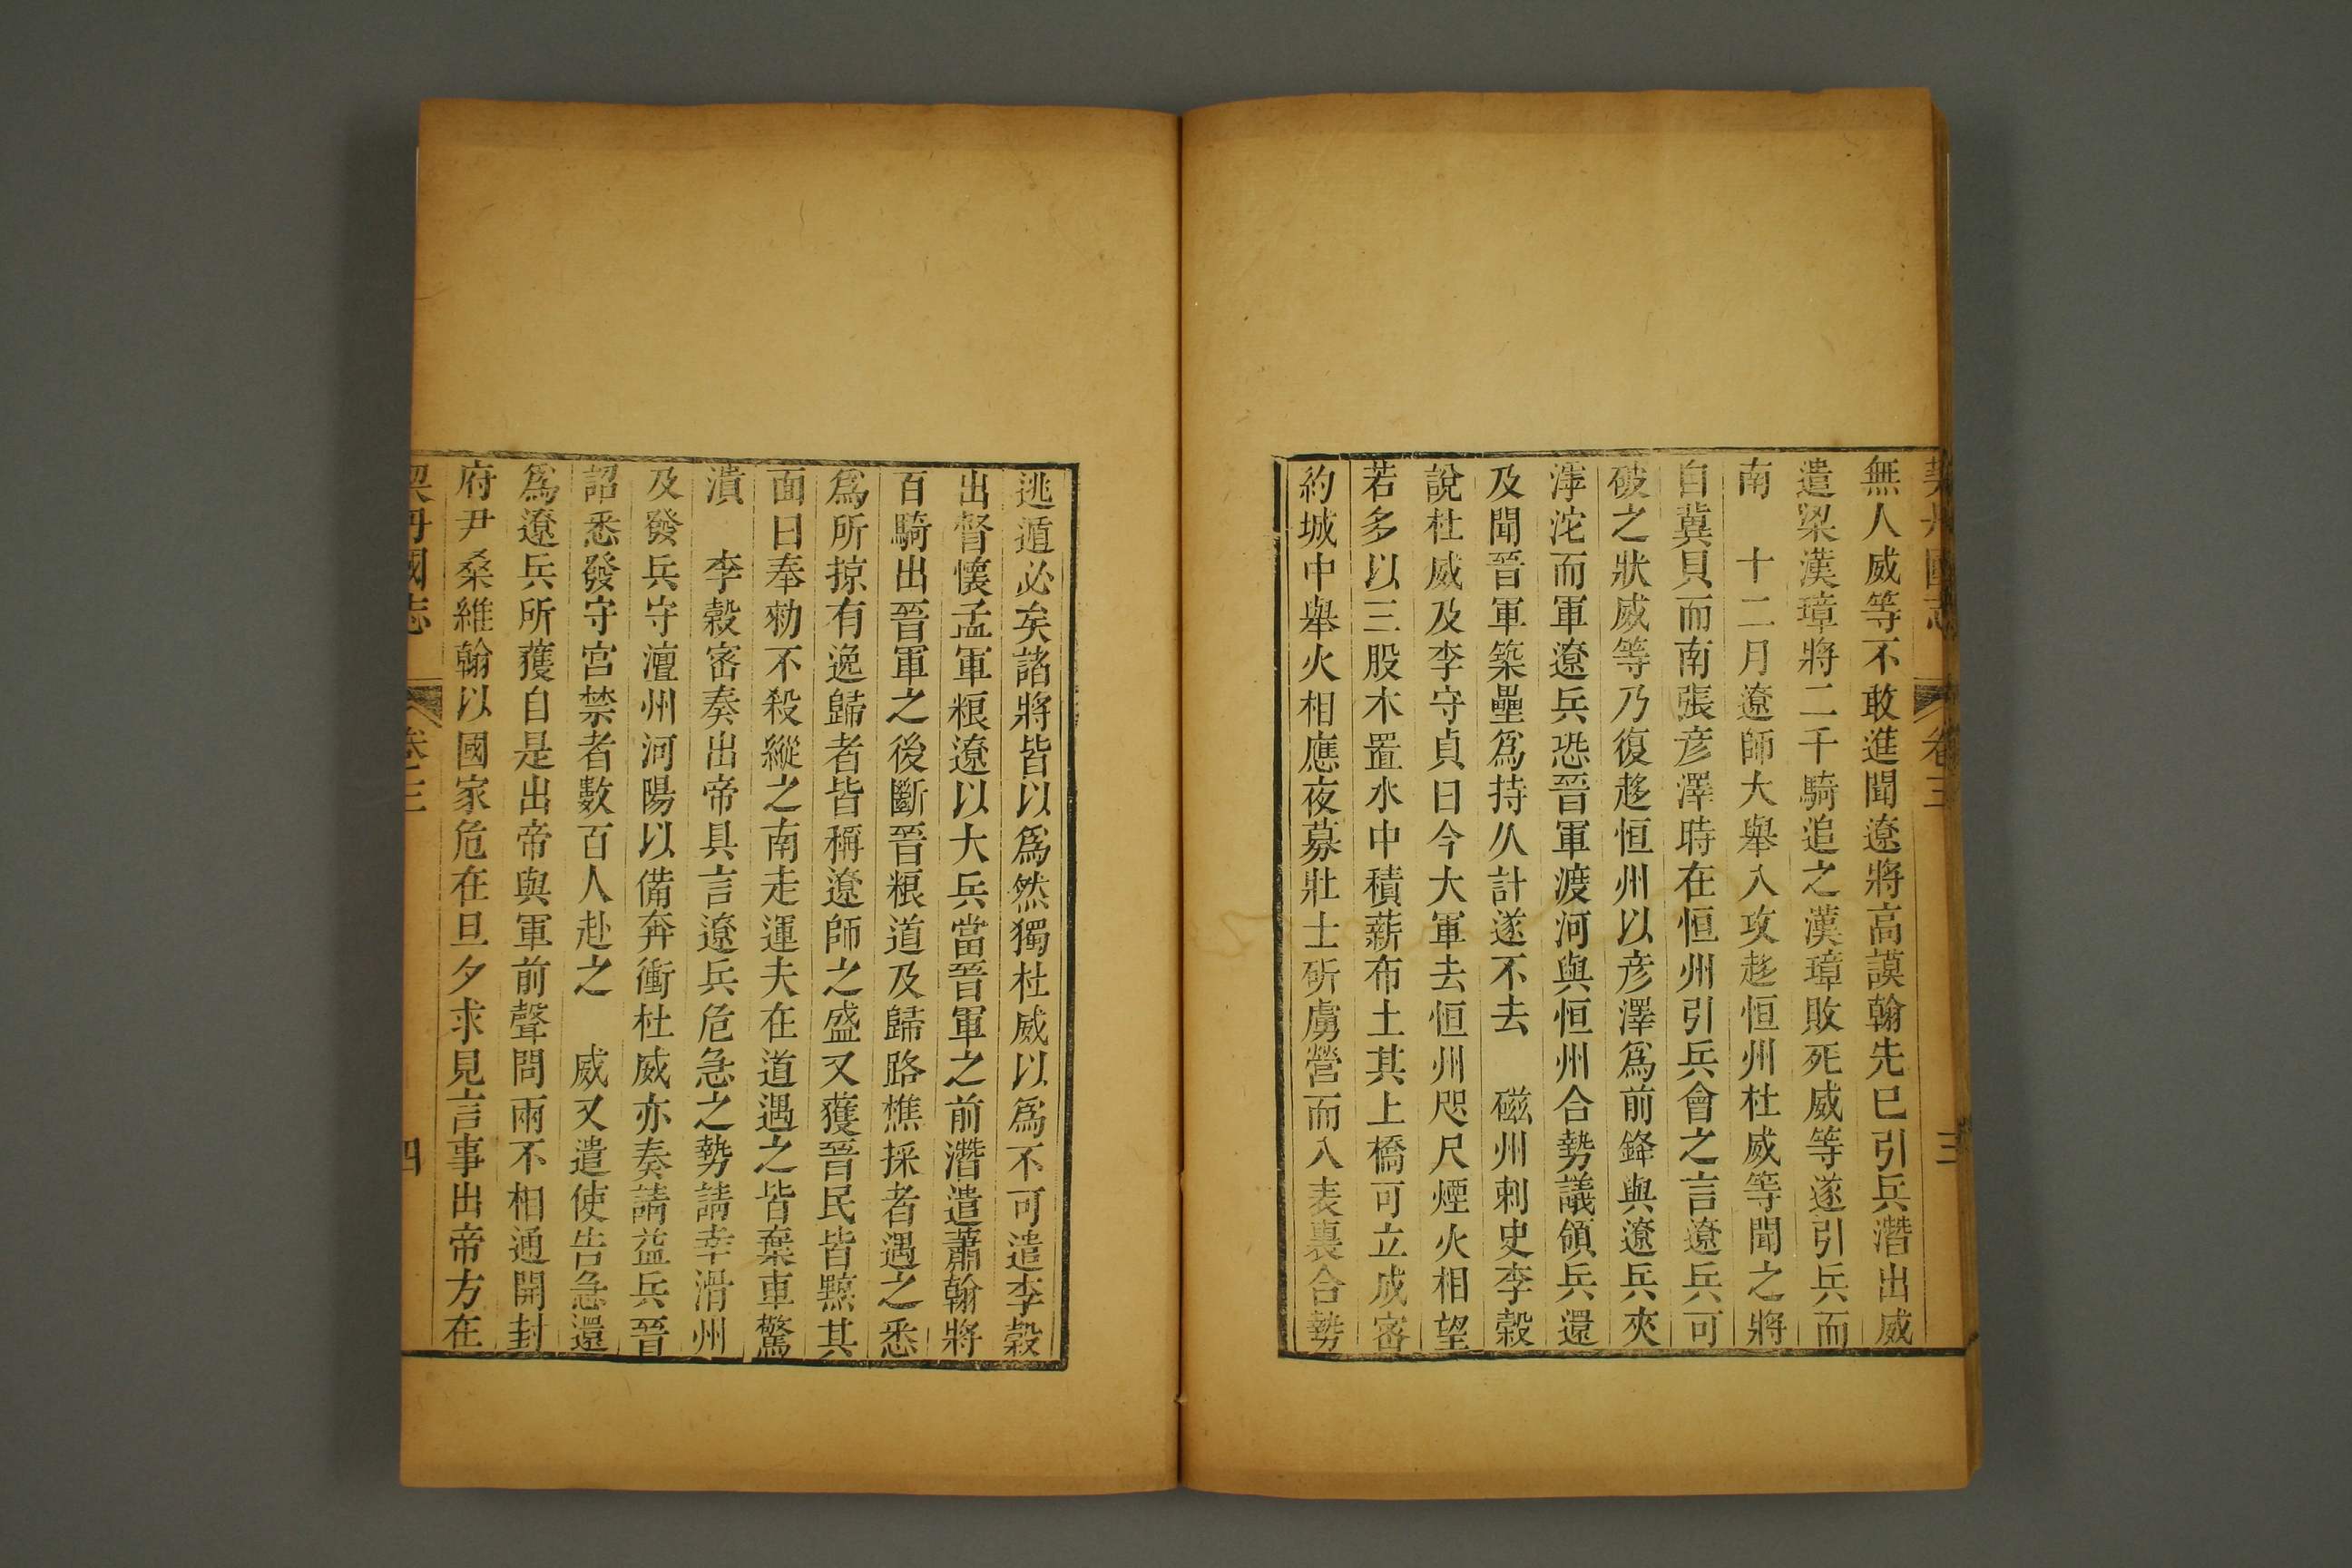 契丹國志 卷三 三
無人威等不敢進聞遼將高謨翰先已引兵潛出威
遣梁漢璋將二千騎追之漢璋敗死威等遂引兵而
南 十二月遼師大舉入攻趍恒州杜威等聞之將
自冀貝而南張彥澤時在恒州引兵會之言遼兵可
破之狀威等乃復趍恒州以彥澤爲前鋒與遼兵夾
滹沱而軍遼兵恐晉軍渡河與恒州合勢議領兵還
及聞晉軍築壘爲持久計遂不去 磁州刺史李穀
說杜威及李守貞曰今大軍去恒州咫尺煙火相望
若多以三股木置水中積薪布土其上橋可立成密
約城中舉火相應夜募壯士斫虜營而入表裏合勢
逃遁必矣諸將皆以爲然獨杜威以爲不可遣李穀
出督懷孟軍粮遼以大兵當晉軍之前潛遣蕭翰將
百騎出晉軍之後斷晉粮道及歸路樵採者遇之悉
爲所掠有逸歸者皆稱遼師之盛又獲晉民皆黥其
面曰奉勑不殺縱之南走運夫在道遇之皆棄車驚
潰 李穀密奏出帝具言遼兵危急之勢請幸滑州
及發兵守澶州河陽以備奔衝杜威亦奏請益兵晉
詔悉發守宮禁者數百人赴之 威又遣使告急還
爲遼兵所獲自是出帝與軍前聲問兩不相通開封
府尹桑維翰以國家危在旦夕求見言事出帝方在
契丹國志 卷三 四